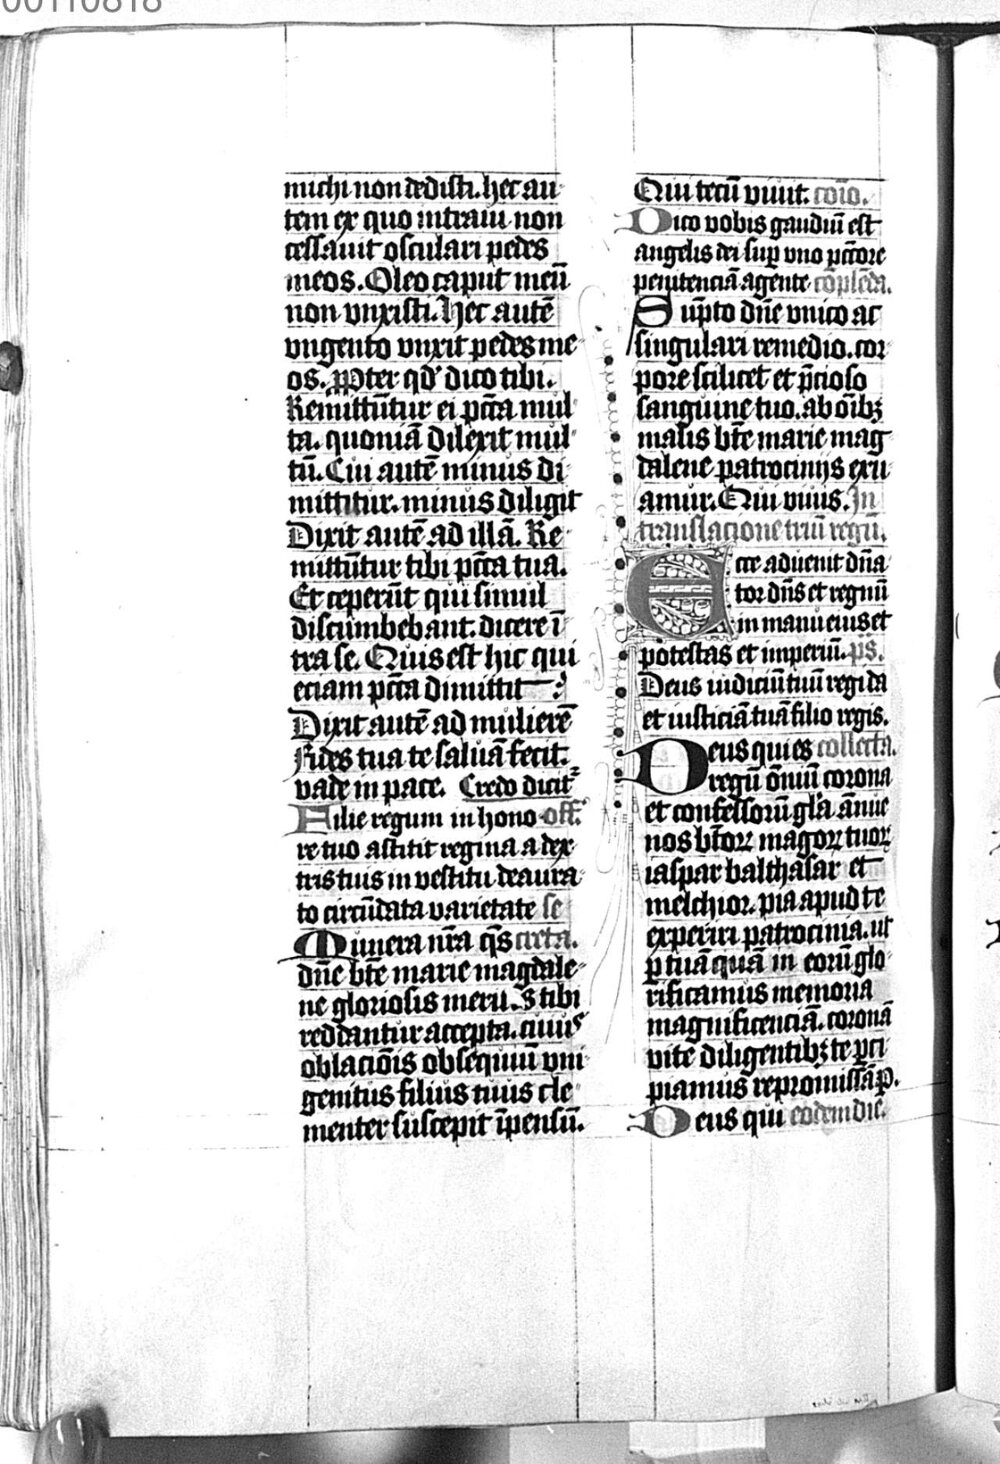 00110818
michi non dedisti. hec au
tem ex quo intraui non
cessauit osculari pedes
meos. Oleo caput meū
non vnxisti. Hec autē
vngento vnxit pedes me
os. ꝓpter qđ dico tibi.
Remittūtur ei pctā mul
ta. quoniā dilexit mul
tū. Cui autē minus di
mittitur. minus diligit
Dixit autē ad illā. Re
mittūtur tibi pctā tua.
Et ceperūt qui simul
discumbebant. dicere ī
tra se. Quis est hic qui
eciam pctā dimittit ?
Dixit autē ad mulierē
Fides tua te saluā fecit.
vade in pace. Credo dicit᷑
Filie regum in hono off.
re tuo astitit regina a dex
tris tuis in vestitu deaura
to circūdata varietate se
Munera nrā qs̄ creta.
dnē btē marie magdale
ne gloriosis merit. s tibi
reddantur accepta. cuius
oblaciōis obsequiū vni
genitus filius tuus cle
menter suscepit īpensū.
Qui tecū viuit. coīo.
Dico vobis gaudiū est
angelis dei suꝑ vno pctōre
penitenciā agente cōplēda.
Sūpto dnē vnico ac
singulari remedio. cor
pore scilicet et p̄cioso
sanguine tuo. ab oībꝫ
malis btē marie mag
dalene patrocinijs exu
amur. Qui viuis. In
translacione triū regū.
Ecce aduenit dn̄a
tor dn̄s et regnū
in manu eius et
potestas et imperiū. ps̄.
Deus iudiciū tuū regi da
et iusticiā tuā filio regis.
Deus qui es collecta.
regū ōniū corona
et confessorū glā ānue
nos btōꝝ magoꝝ tuoꝝ
iaspar balthasar et
melchior. pia apud te
experiri patrocinia. ut
ꝑ tuā quā in eorū glo
rificamus memoria
magnificenciā. coronā
vite diligentibꝫ te ꝑci
piamus repromissā. P.
Deus qui eodem die.